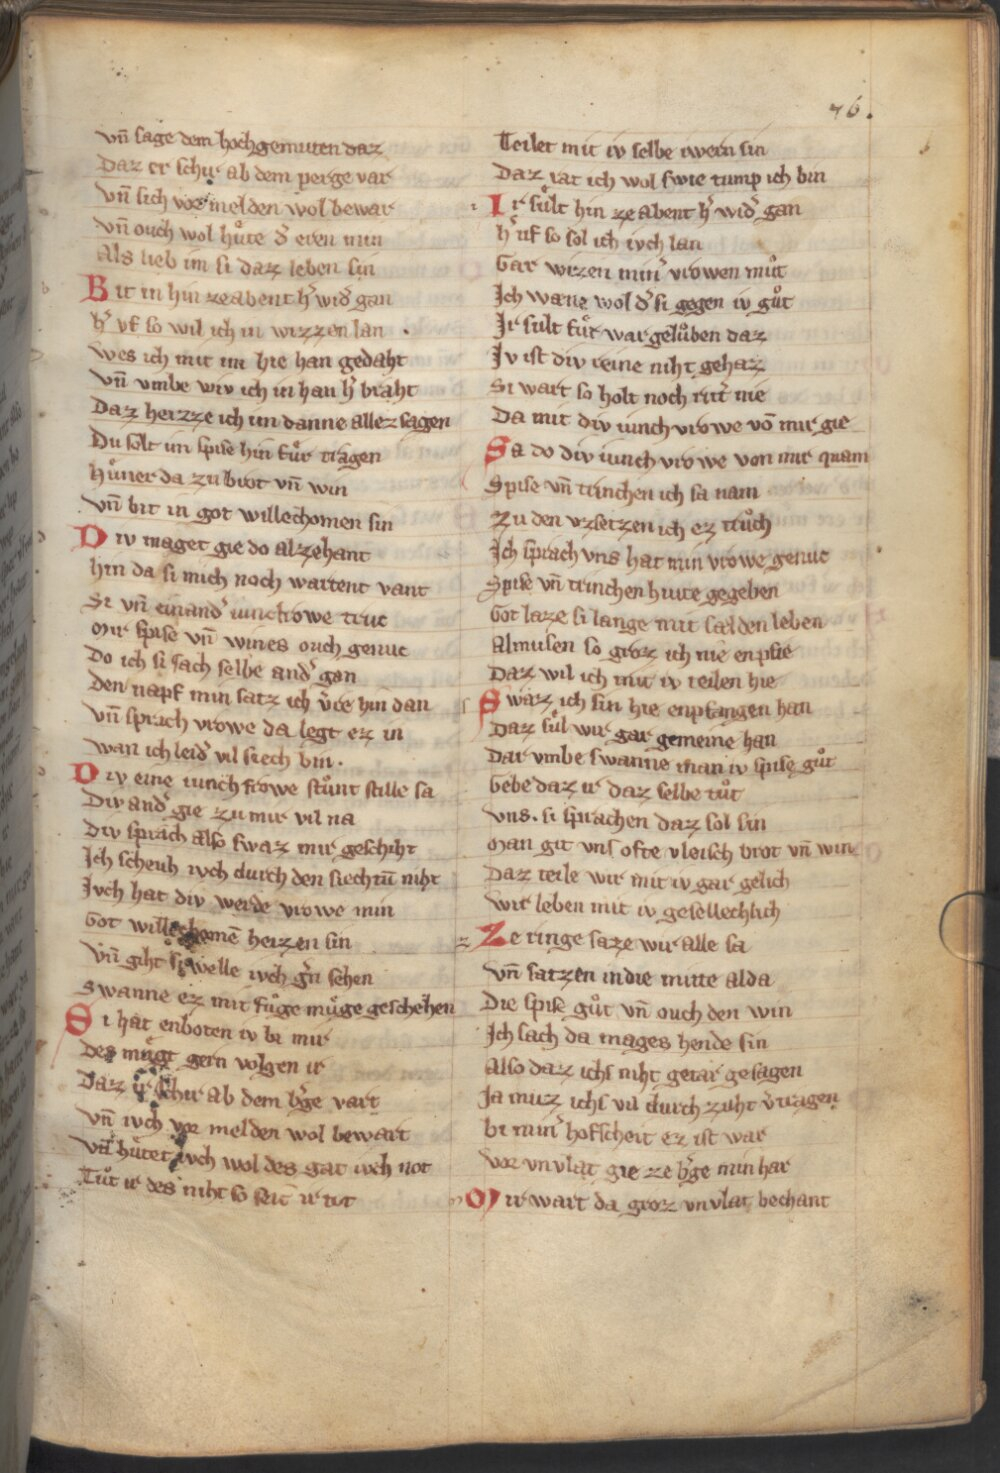 76.
vn̄ sage dem hochgemuten daz
Daz er schir ab dem perge var
Vn̄ sich vor melden wol bewar
vn̄ ouch wol huͦte d' eren min
Als lieb im si daz leben sin
Bit in hin ze abent h' wid' gan
h' vf so wil ich in wizzen lan
Wes ich mit im hie han gedaht
Vn̄ vmbe wiv ich in han h' braht
Daz herzze ich im danne allez sagen
Du solt im spise hin fuͤr tragen
Huͤner da zu brot vn̄ win
Vn̄ bit in got willechomen sin
Div maget gie do alzehant
hin da si mich noch wartent vant
Si vn̄ ein and' iuncfrowe trut
Mir spise vn̄ wines ouch genuc
Do ich si sach selbe and' gan
Den napf min satz ich v̄re hin dan
Vn̄ sprach vrowe da legt ez in
wan ich leid' vil siech bin.
Div eine iunchfrowe stuͦnt stille sa
Div and' gie zu mir vil na
Div sprach also swaz mir geschiht
Ich scheuh ivch durch den siechtū niht
Jvch hat div werde vrowe min
Got willechomē heizen sin
Vn̄ giht si welle ivch g'n sehen
Swanne ez mit fuͦge muͤge geschehen
Si hat enboten iv bi mir
Des muͤgt gern volgen ir
Daz ir schir ab dem b'ge vart
Vn̄ ivch vor melden wol bewart
Vn̄ huͤtet ivch wol des gat ivch not
Tuͦt ir des niht so seit ir tot
Teilet mit iv selbe iwern sin
Daz rat ich wol swie tump ich bin
Ir suͤlt hin ze abent h' wid' gan
h' uf so sol ich ivch lan
Gar wizen min' vrowen muͦt
Ich wæne wol d' si gegen iv guͦt
Ir sult fuͤr war gelouben daz
Jv ist div reine niht gehaz
Si wart so holt noch rit' nie
Da mit div iunch vrowe vō mir gie
Sa do div iunch vrowe von mir quam
Spise vn̄ trinchen ich sa nam
Zu den vzsetzen ich ez truͦch
Ich sprach vns hat min vrowe genuc
Spise vn̄ trinchen hiute gegeben
Got laze si lange mit sælden leben
Almusen so groz ich nie enpfie
Daz wil ich mit iv teilen hie
Swaz ich sin hie enpfangen han
Daz suͤl wir gar gemeine han
Dar vmbe swanne man iv spise guͦt
Gebe daz ir daz selbe tuͦt
Vns. si sprachen daz sol sin
Man git vns ofte vleisch brot vn̄ win
Daz teile wir mit iv gar gelich
Wir leben mit iv gesellechlich
Ze ringe saze wir alle sa
Vn̄ satzen in die mitte alda
Die spise guͦt vn̄ ouch den win
Ich sach da mages hende sin
Also daz ichs niht getar gesagen
Ja muz ichs vil durch zuht v'tragen
Bi min' hofscheit ez ist war
Vor vnvlat gie ze b'ge min har
Mir wart da groz vnvlat bechant